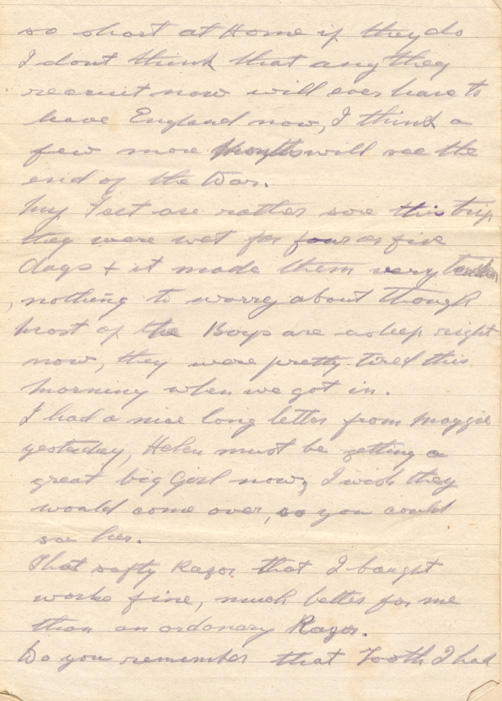 so short at Home if they do
I dont think that any they
recruit now will ever have to
leave England now, I think a
few more Months will see the
end of the War.
My Feet are rather sore this trip
they were wet for four or five
days & it made them very tender
, nothing to worry about though
most of the Boys are asleep right
now, they were pretty tired this
morning when we got in.
I had a nice long letter from Maggie
yesterday, Helen must be getting a
great big Girl now, I wish they
would come over, so you could
see her.
That safty Razor that I bought
works fine, much better for me
than an ordonary Razor.
Do you remember that Tooth I had